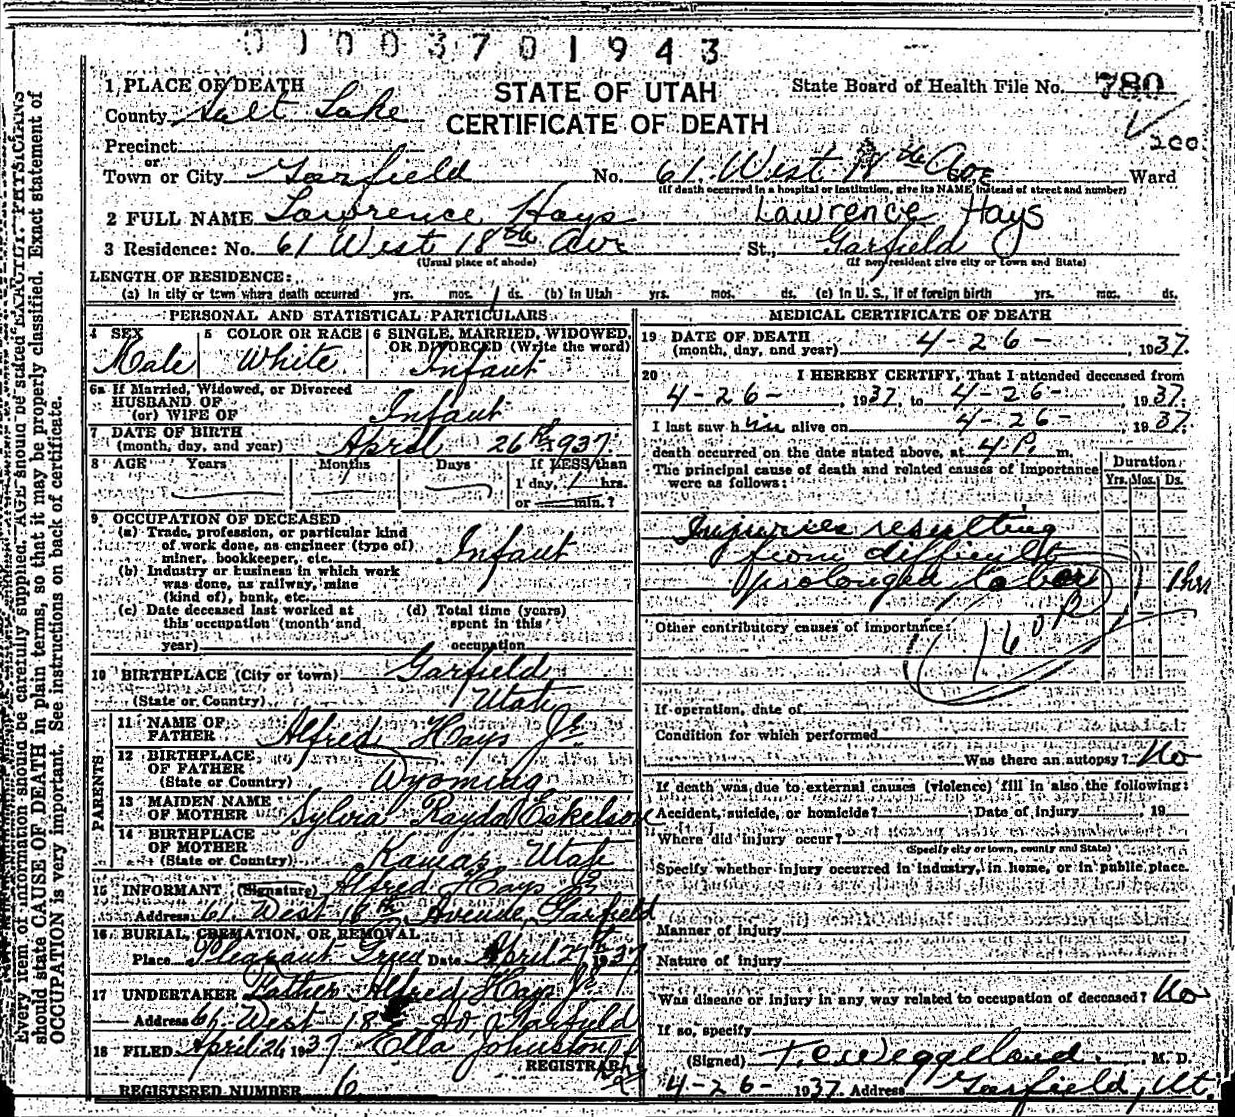 0100370 1943
1 PLACE OF DEATH
STATE OF UTAH
State Board of Health File No. 780
County Salt Lake
CERTIFICATE OF DEATH
200
Precinct
or
Town or City Garfield No. 61 West 18th Ave Ward
(If death occurred in a hospital or institution, give its NAME instead of street and number)
2 FULL NAME Lawrence Hays Lawrence Hays
3 Residence: No. 61 West 18th Ave St., Garfield
(Usual place of abode) (If non-resident give city or town and State)
LENGTH OF RESIDENCE:
(a) In city or town where death occurred yrs. mos. 1 ds. (b) In Utah yrs. mos. ds. (c) In U. S., if of foreign birth yrs. mos. ds.
PERSONAL AND STATISTICAL PARTICULARS
4 SEX 5 COLOR OR RACE 6 SINGLE, MARRIED, WIDOWED,
OR DIVORCED (Write the word)
Male White Infant
6a If Married, Widowed, or Divorced
HUSBAND OF
(or) WIFE OF Infant
7 DATE OF BIRTH
(month, day, and year) April 26th 1937
8 AGE Years Months Days If LESS than
1 day, 1 hrs.
or min.?
9. OCCUPATION OF DECEASED
(a) Trade, profession, or particular kind
of work done, as engineer (type of)
miner, bookkeeper, etc. Infant
(b) Industry or business in which work
was done, as railway, mine
(kind of), bank, etc.
(c) Date deceased last worked at (d) Total time (years)
this occupation (month and spent in this
year) occupation
10 BIRTHPLACE (City or town) Garfield
(State or Country) Utah
PARENTS
11 NAME OF
FATHER Alfred Hays Jr.
12 BIRTHPLACE
OF FATHER
(State or Country) Wyoming
13 MAIDEN NAME
OF MOTHER Sylvia Rayda Eskelson
14 BIRTHPLACE
OF MOTHER
(State or Country) Kamas, Utah
15 INFORMANT (Signature) Alfred Hays Jr
Address 61 West 18th Avenue, Garfield
16 BURIAL, CREMATION, OR REMOVAL
Place Pleasant Green Date April 27th 1937
17 UNDERTAKER Father Alfred Hays Jr
Address 61 West 18 Av. Garfield
18 FILED April 26 1937 Ella Johnston
REGISTRAR
REGISTERED NUMBER 6
MEDICAL CERTIFICATE OF DEATH
19 DATE OF DEATH
(month, day, and year) 4-26- , 1937.
20 I HEREBY CERTIFY, That I attended deceased from
4-26- , 1937, to 4-26- , 1937.
I last saw him alive on 4-26- , 1937.
death occurred on the date stated above, at 4 P. m.
The principal cause of death and related causes of importance
were as follows:
Duration
Yrs. Mos. Ds.
Injuries resulting
from difficult
prolonged labor 1 hrs
Other contributory causes of importance:
160
If operation, date of
Condition for which performed
Was there an autopsy? No
If death was due to external causes (violence) fill in also the following:
Accident, suicide, or homicide? Date of injury , 19
Where did injury occur?
(Specify city or town, county and State)
Specify whether injury occurred in industry, in home, or in public place.
Manner of injury
Nature of injury
Was disease or injury in any way related to occupation of deceased? No
If so, specify
(Signed) T.C. Weggeland M. D.
4-26- 1937 Address Garfield, Ut.
Every item of information should be carefully supplied. AGE should be stated EXACTLY. PHYSICIANS
should state CAUSE OF DEATH in plain terms, so that it may be properly classified. Exact statement of
OCCUPATION is very important. See instructions on back of certificate.